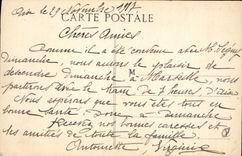 Aix le 29 Novembre 1917
CARTE POSTALE
Chères Amies
Comme il a été convenu avec Mr
dimanche, nous aurons le plaisir de
descendre dimanche à Marseille, nous
partirons de 7 heures d'Aix
Nous espérons que vous êtes tous en
bonne Santé, donc à dimanche
Recevez nos bonnes caresses et
les amitiés de toute la famille.
Antoinette Virginie